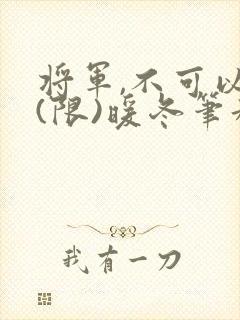 将軍,不可以
(限)暖冬筆
我有一刀